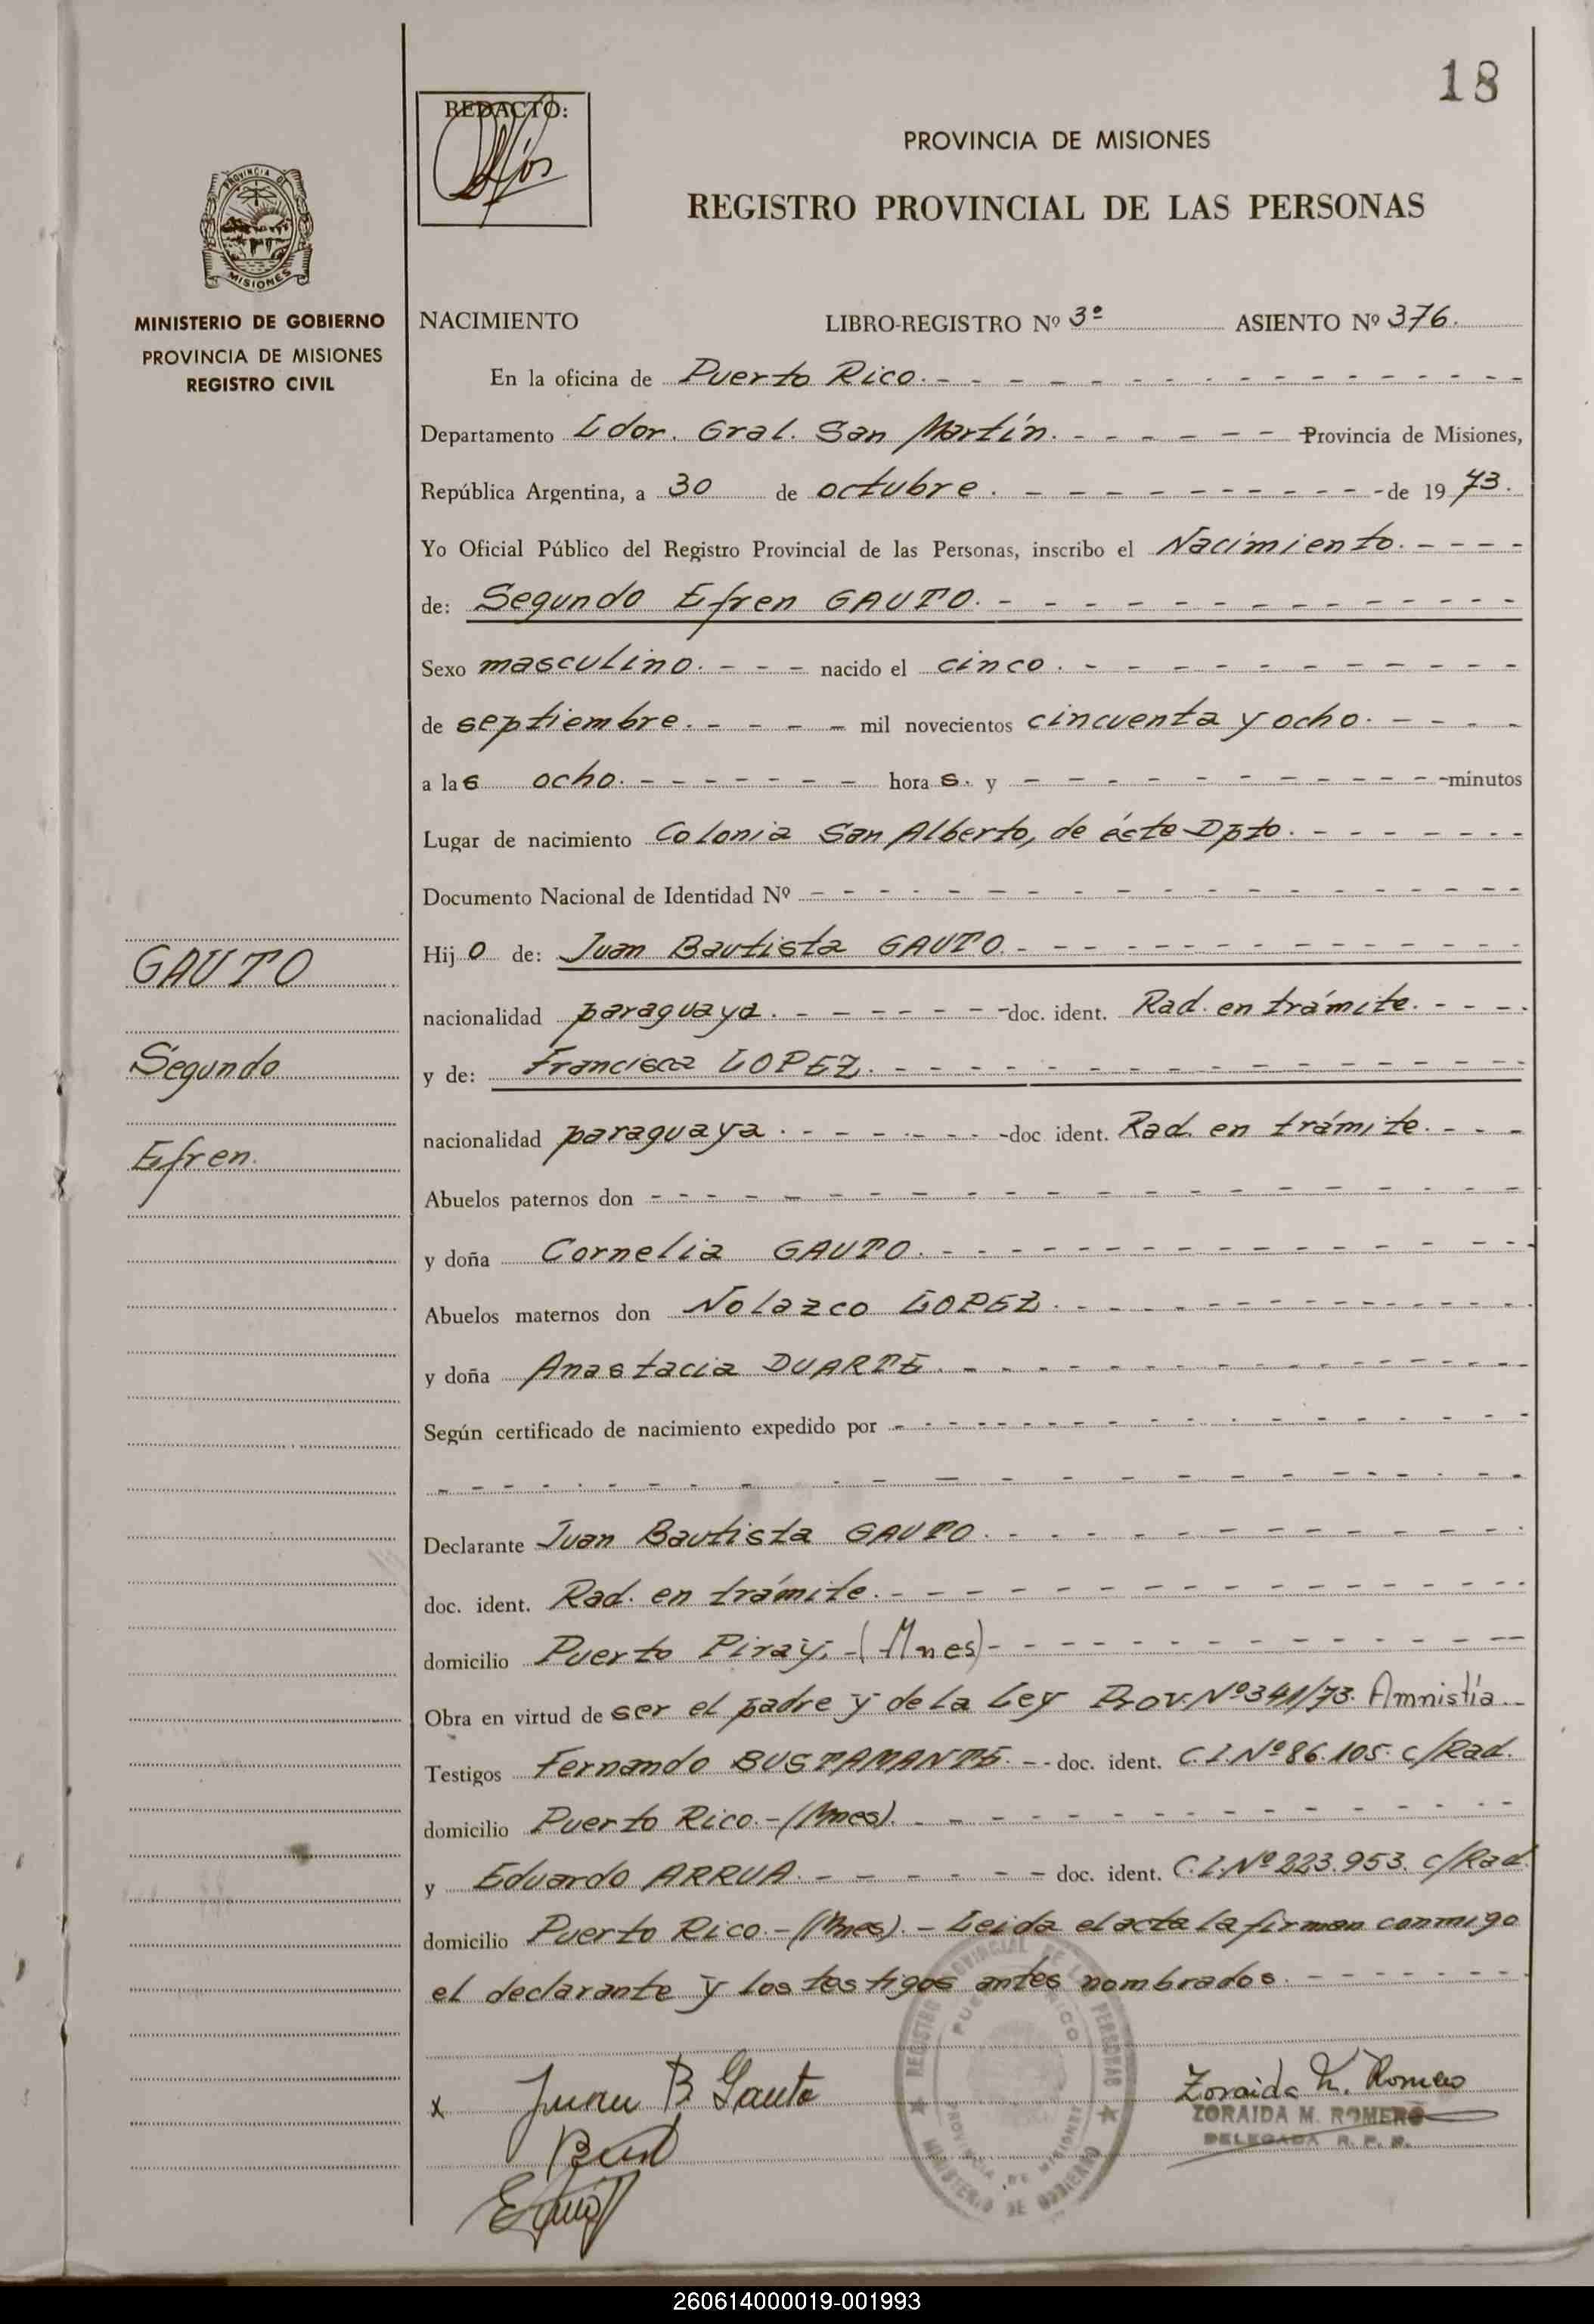 18
REDACTÓ:
PROVINCIA DE MISIONES
REGISTRO PROVINCIAL DE LAS PERSONAS
PROVINCIA DE
MISIONES
MINISTERIO DE GOBIERNO
PROVINCIA DE MISIONES
REGISTRO CIVIL
NACIMIENTO LIBRO-REGISTRO Nº 3º ASIENTO Nº 376.
En la oficina de Puerto Rico.
Departamento Ldor. Gral. San Martín. Provincia de Misiones,
República Argentina, a 30 de octubre. de 1973.
Yo Oficial Público del Registro Provincial de las Personas, inscribo el Nacimiento.
de: Segundo Efren GAUTO.
Sexo masculino. nacido el cinco.
de septiembre. mil novecientos cincuenta y ocho.
a las ocho. horas. y minutos
Lugar de nacimiento Colonia San Alberto, de éste Dpto.
Documento Nacional de Identidad Nº
GAUTO
Segundo
Efren.
Hijo de: Juan Bautista GAUTO.
nacionalidad paraguaya. doc. ident. Rad. en trámite.
y de: Francisca LOPEZ.
nacionalidad paraguaya. doc ident. Rad. en trámite.
Abuelos paternos don
y doña Cornelia GAUTO.
Abuelos maternos don Nolazco LOPEZ.
y doña Anastacia DUARTE.
Según certificado de nacimiento expedido por
Declarante Juan Bautista GAUTO.
doc. ident. Rad. en trámite.
domicilio Puerto Piray. -(Mnes)-
Obra en virtud de ser el padre y de la Ley Prov. Nº 341/73. Amnistía.
Testigos Fernando BUSTAMANTE. doc. ident. C.I. Nº 86.105. c/Rad.
domicilio Puerto Rico.-(Mnes).
y Eduardo ARRUA. doc. ident. C.I. Nº 223.953. c/Rad.
domicilio Puerto Rico.-(Mnes).- Leida el acta la firman conmigo
el declarante y los testigos antes nombrados.
REGISTRO PROVINCIAL DE LAS PERSONAS
PUERTO RICO
PROVINCIA DE MISIONES
MINISTERIO DE GOBIERNO
x Juan B Gauto
Zoraida M. Romero
ZORAIDA M. ROMERO
DELEGADA R. P. P.
260614000019-001993